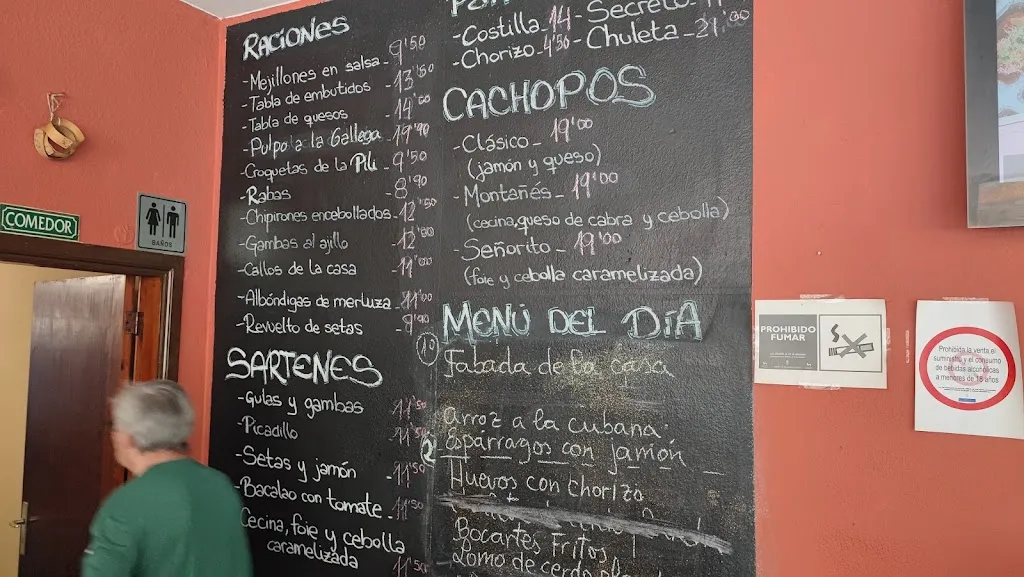 RACIONES
-Mejillones en salsa - 9'50
-Tabla de embutidos - 13'50
-Tabla de quesos - 14'00
-Pulpo a la Gallega - 19'90
-Croquetas de la Pili - 9'50
-Rabas - 8'90
-Chipirones encebollados - 12'50
-Gambas al ajillo - 12'00
-Callos de la casa - 11'00
-Albóndigas de merluza - 11'00
-Revuelto de setas - 9'90
SARTENES
-Gulas y gambas 11'50
-Picadillo - 11'50
-Setas y jamón - 11'50
-Bacalao con tomate - 11'50
Cecina, foie y cebolla
caramelizada 11'50
-Costilla - 14 - Secreto
-Chorizo - 4'50 - Chuleta - 21'00
CACHOPOS
-Clásico - 19'00
(jamón y queso)
-Montañés - 19'00
(cecina, queso de cabra y cebolla)
-Señorito - 19'00
(foie y cebolla caramelizada)
MENÚ DEL DÍA
1º Fabada de la casa
arroz a la cubana
Espárragos con jamón
2 Huevos con chorizo
Bocartes Fritos
Lomo de cerdo
COMEDOR
BAÑOS
PROHIBIDO
FUMAR
Prohibida la venta el
suministro y el consumo
de bebidas alcohólicas
a menores de 18 años